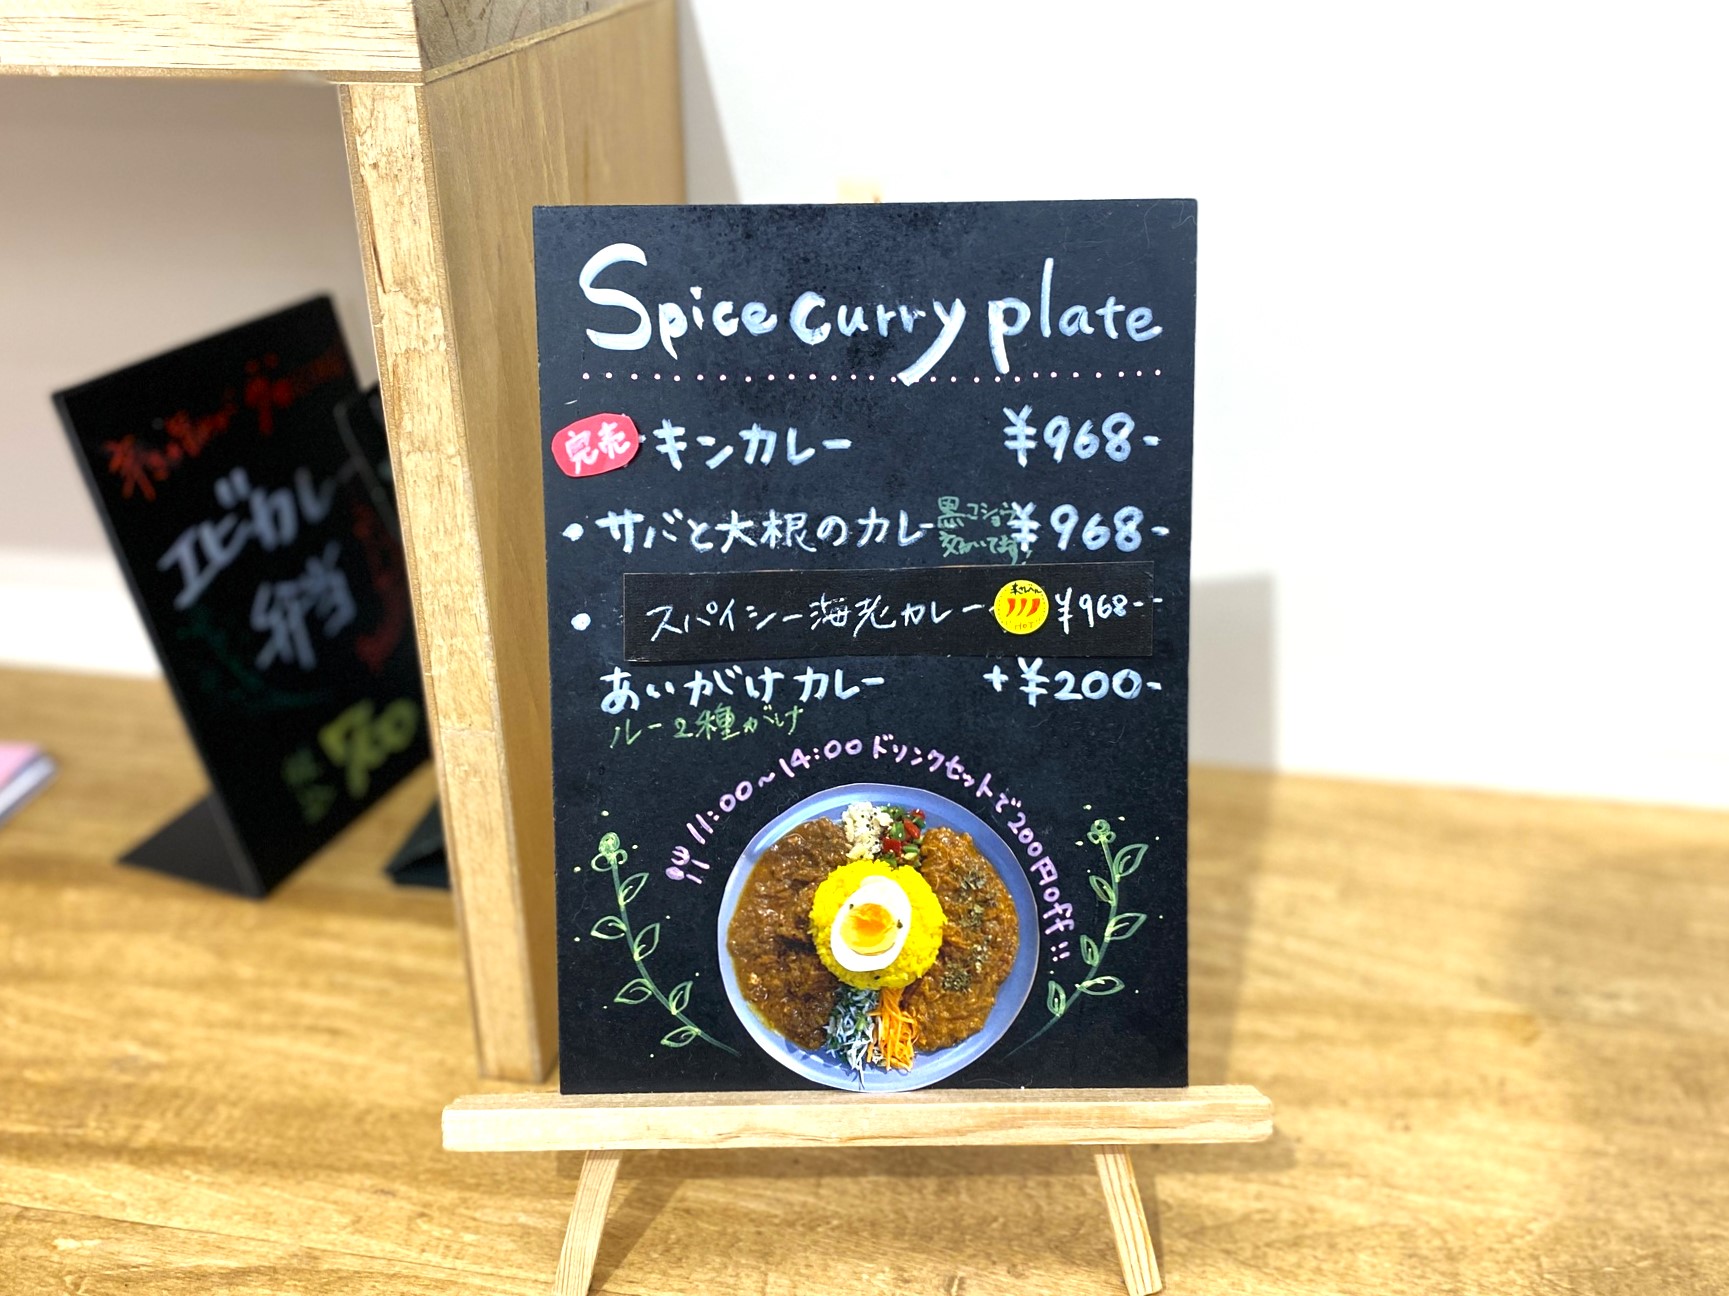 Spice curry plate
完売 キンカレー ¥968-
・サバと大根のカレー 黒コショウ ¥968-
・スパイシー海老カレー 辛さレベル HOT ¥968-
あいがけカレー +¥200-
ルー2種がけ
11:00~14:00 ドリンクセットで200円off!!
エビカレー
弁当
700